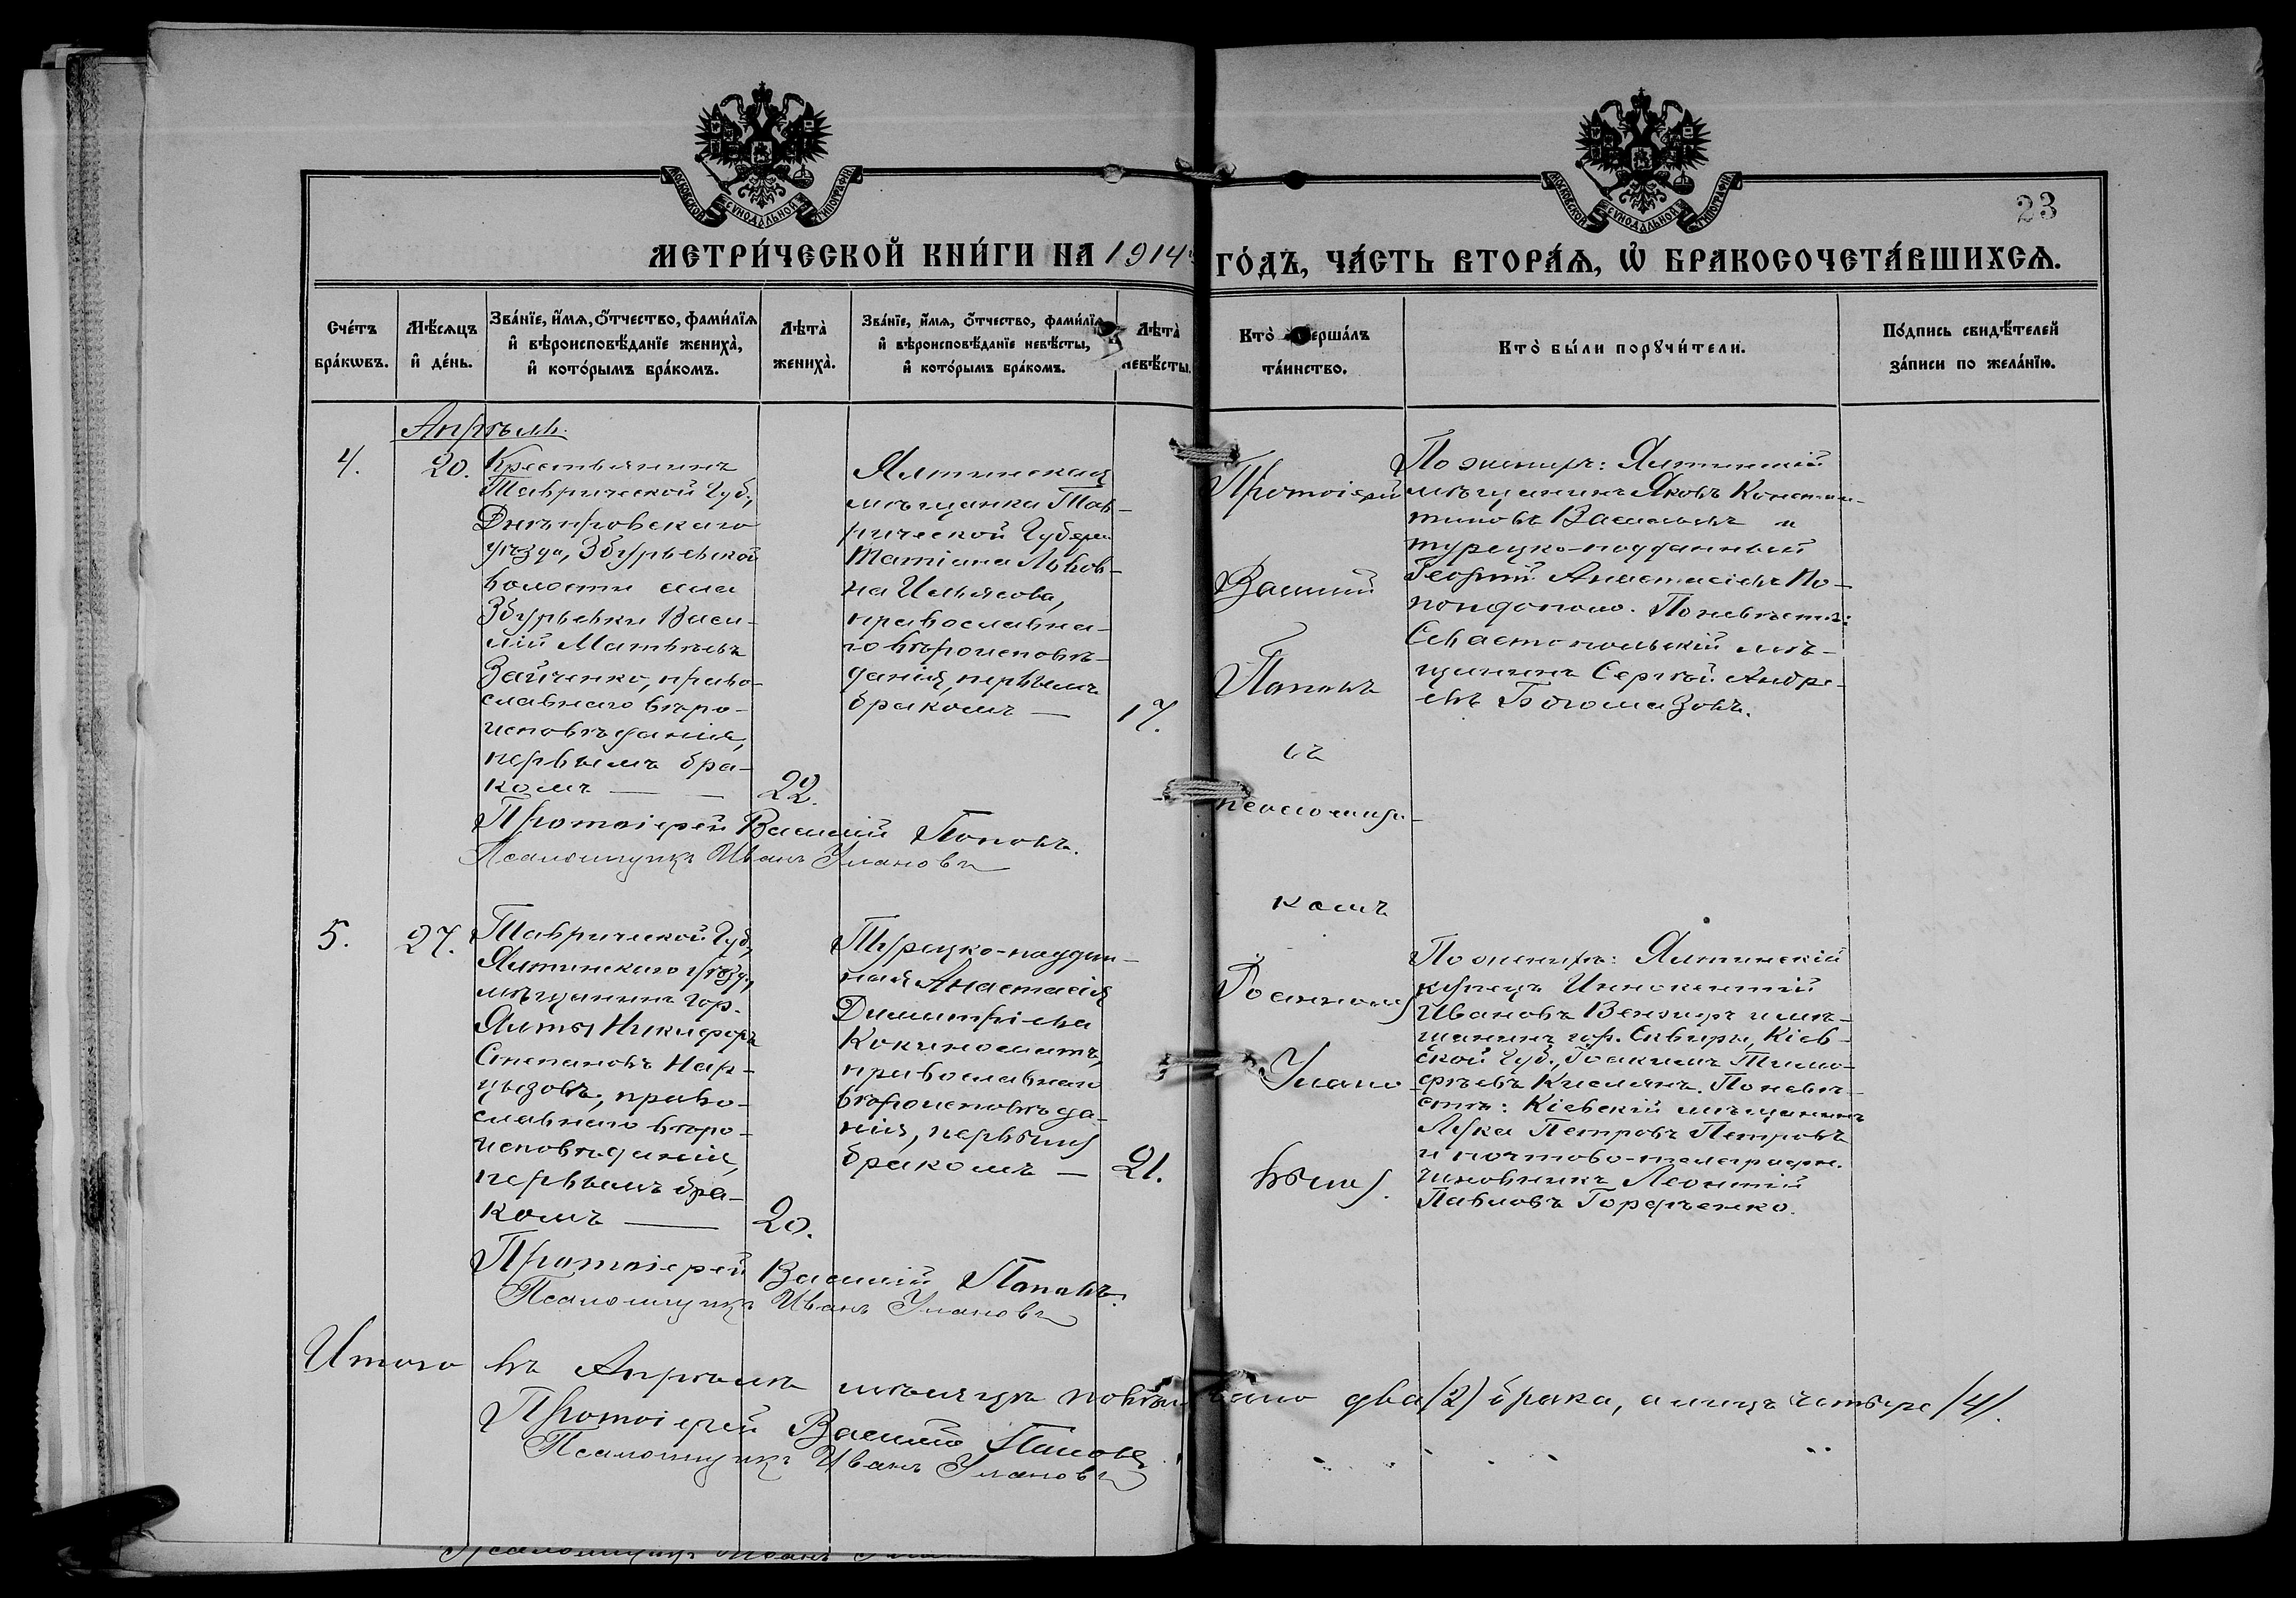 МОСКОВСКОЙ СѴНОДАЛЬНОЙ ТИПОГРАФІИ
МОСКОВСКОЙ СѴНОДАЛЬНОЙ ТИПОГРАФІИ
23
МЕТРИ́ЧЕСКОЙ КНИ́ГИ НА 1914 ГО́ДЪ, ЧА́СТЬ ВТОРА́Ѧ, Ѡ҆ БРАКОСОЧЕТА́ВШИХСѦ.
Сче́тъ
бра́кѡвъ.
Мѣ́сѧцъ
и҆ де́нь.
Зва́нїе, и҆́мѧ, ѻ҆́тчество, фами́лїѧ
и҆ вѣроисповѣ́данїе жениха̀,
и҆ кото́рымъ бра́комъ.
Лѣта̀
жениха̀.
Зва́нїе, и҆́мѧ, ѻ҆́тчество, фами́лїѧ
и҆ вѣроисповѣ́данїе невѣ́сты,
и҆ кото́рымъ бра́комъ.
Лѣта̀
невѣ́сты.
Кто̀ совершалъ
та́инство.
Кто̀ бы́ли порꙋчи́тели.
По́дпись свидѣ́телей
за́писи по жела́нїю.
Апрѣль.
4.
20.
Крестьянинъ
Таврической Губ.,
Днѣпровскаго
уѣзда, Збурьевской
волости села
Збурьевки Васи-
лій Матвѣевъ
Зайченко, право-
славнаго вѣро-
исповѣданія,
первымъ бра-
комъ —
22.
Ялтинская
мѣщанка Тав-
рической Губерн.
Татіана Львов-
на Ильясова,
православна-
го вѣроисповѣ-
данія, первымъ
бракомъ —
17.
Протоіерей
Василій
Поповъ
съ
псаломщи-
комъ
Іоанномъ
Улано-
вымъ.
По женихѣ: Ялтинскій
мѣщанинъ Яковъ Констан-
тиновъ Васильевъ и
турецко-подданный
Георгій Анастасіевъ По-
пондополо. По невѣстѣ:
Севастопольскій мѣ-
щанинъ Сергѣй Андре-
евъ Богомазовъ.
Протоіерей Василій Поповъ.
Псаломщикъ Иванъ Улановъ
5.
27.
Таврической Губ.,
Ялтинскаго уѣзда,
мѣщанинъ гор.
Ялты Никифоръ
Степановъ Нар-
цызовъ, право-
славнаго вѣро-
исповѣданія,
первымъ бра-
комъ —
20.
Турецко-поддан-
ная Анастасія
Димитріева
Кокиномати,
православнаго
вѣроисповѣда-
нія, первымъ
бракомъ —
21.
По женихѣ: Ялтинскій
купецъ Иннокентій
Ивановъ и мѣ-
щанинъ гор. Сквиры, Кіев-
ской Губ., Іоакимъ Тимо-
фѣевъ По невѣ-
стѣ: Кіевскій мѣщанинъ
Лука Петровъ Петровъ
и почтово-телеграфн.
чиновникъ Леонтій
Павловъ Гордченко.
Протоіерей Василій Поповъ.
Псаломщикъ Иванъ Улановъ
Итого въ Апрѣлѣ мѣсяцѣ повѣнчано два /2/ брака, а лицъ четыре /4/.
Протоіерей Василій Поповъ
Псаломщикъ Иванъ Улановъ
Псаломщикъ Иванъ